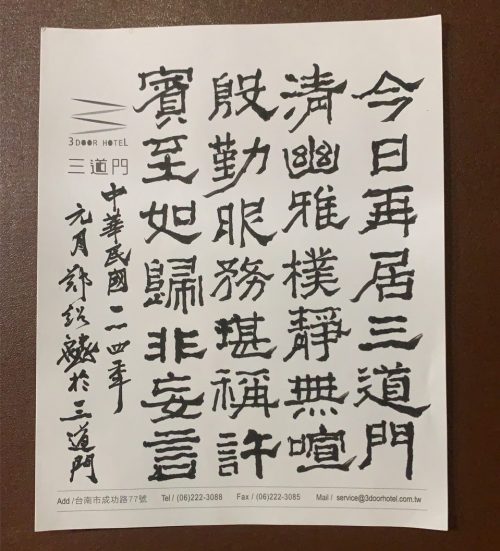 今日再居三道門
清幽雅樸靜無喧
殷勤服務堪稱許
賓至如歸非妄言
中華民國一一四年
元月 鄭 於三道門
3 DOOR HOTEL
三道門
Add /台南市成功路77號 Tel / (06)222-3088 Fax / (06)222-3085 Mail / service@3doorhotel.com.tw